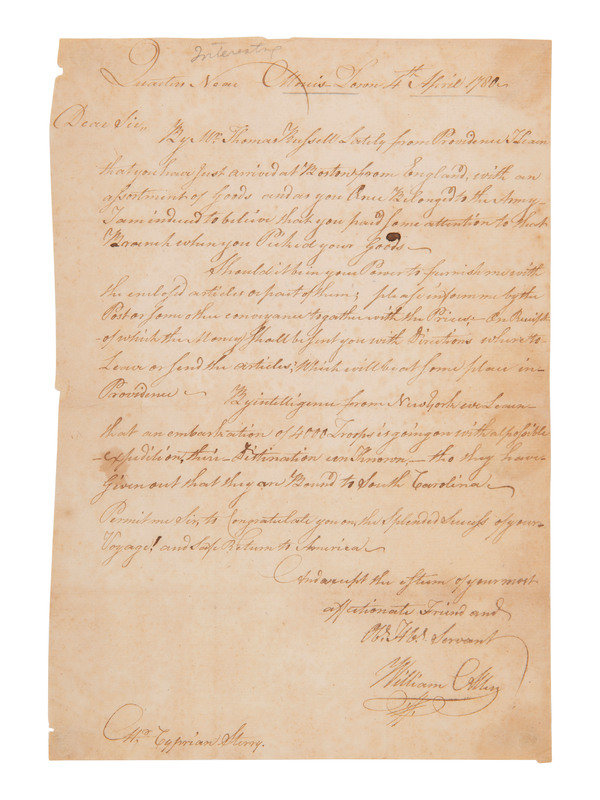 Interesting
Quarters Near Morris Town 4th April 1780
Dear Sir,,
By Mr. Thomas Russell Lately from Providence I learn
that you have Just arrived at Boston from England, with an
assortment of Goods and as you Once Belonged to the Army
I am induced to believe that you paid some attention to that
Branch when you Pick'd your Goods
Should it be in your Power to furnish me with
the enclos'd articles or part of them; please inform me by the
Post or some other conveyance togather with the Prices - On Receipt
of which the Money shall be sent you with Directions where to
Leave or send the articles; Which will be at some place in
Providence By intelligence from New York we Learn
that an embarkation of 4000 Troops is going on with all possible
expedition, their Distination unKnown, - tho they have
Given out that they are Bound to South Carolina
Permit me Sir, to Congratulate you on the Splended Success of your
Voyage! and safe Return to America
And accept the esteem of your most
affationate Friend and
Obd. Hbl. Servant
William Allen
Mr. Cyprian Sterry.